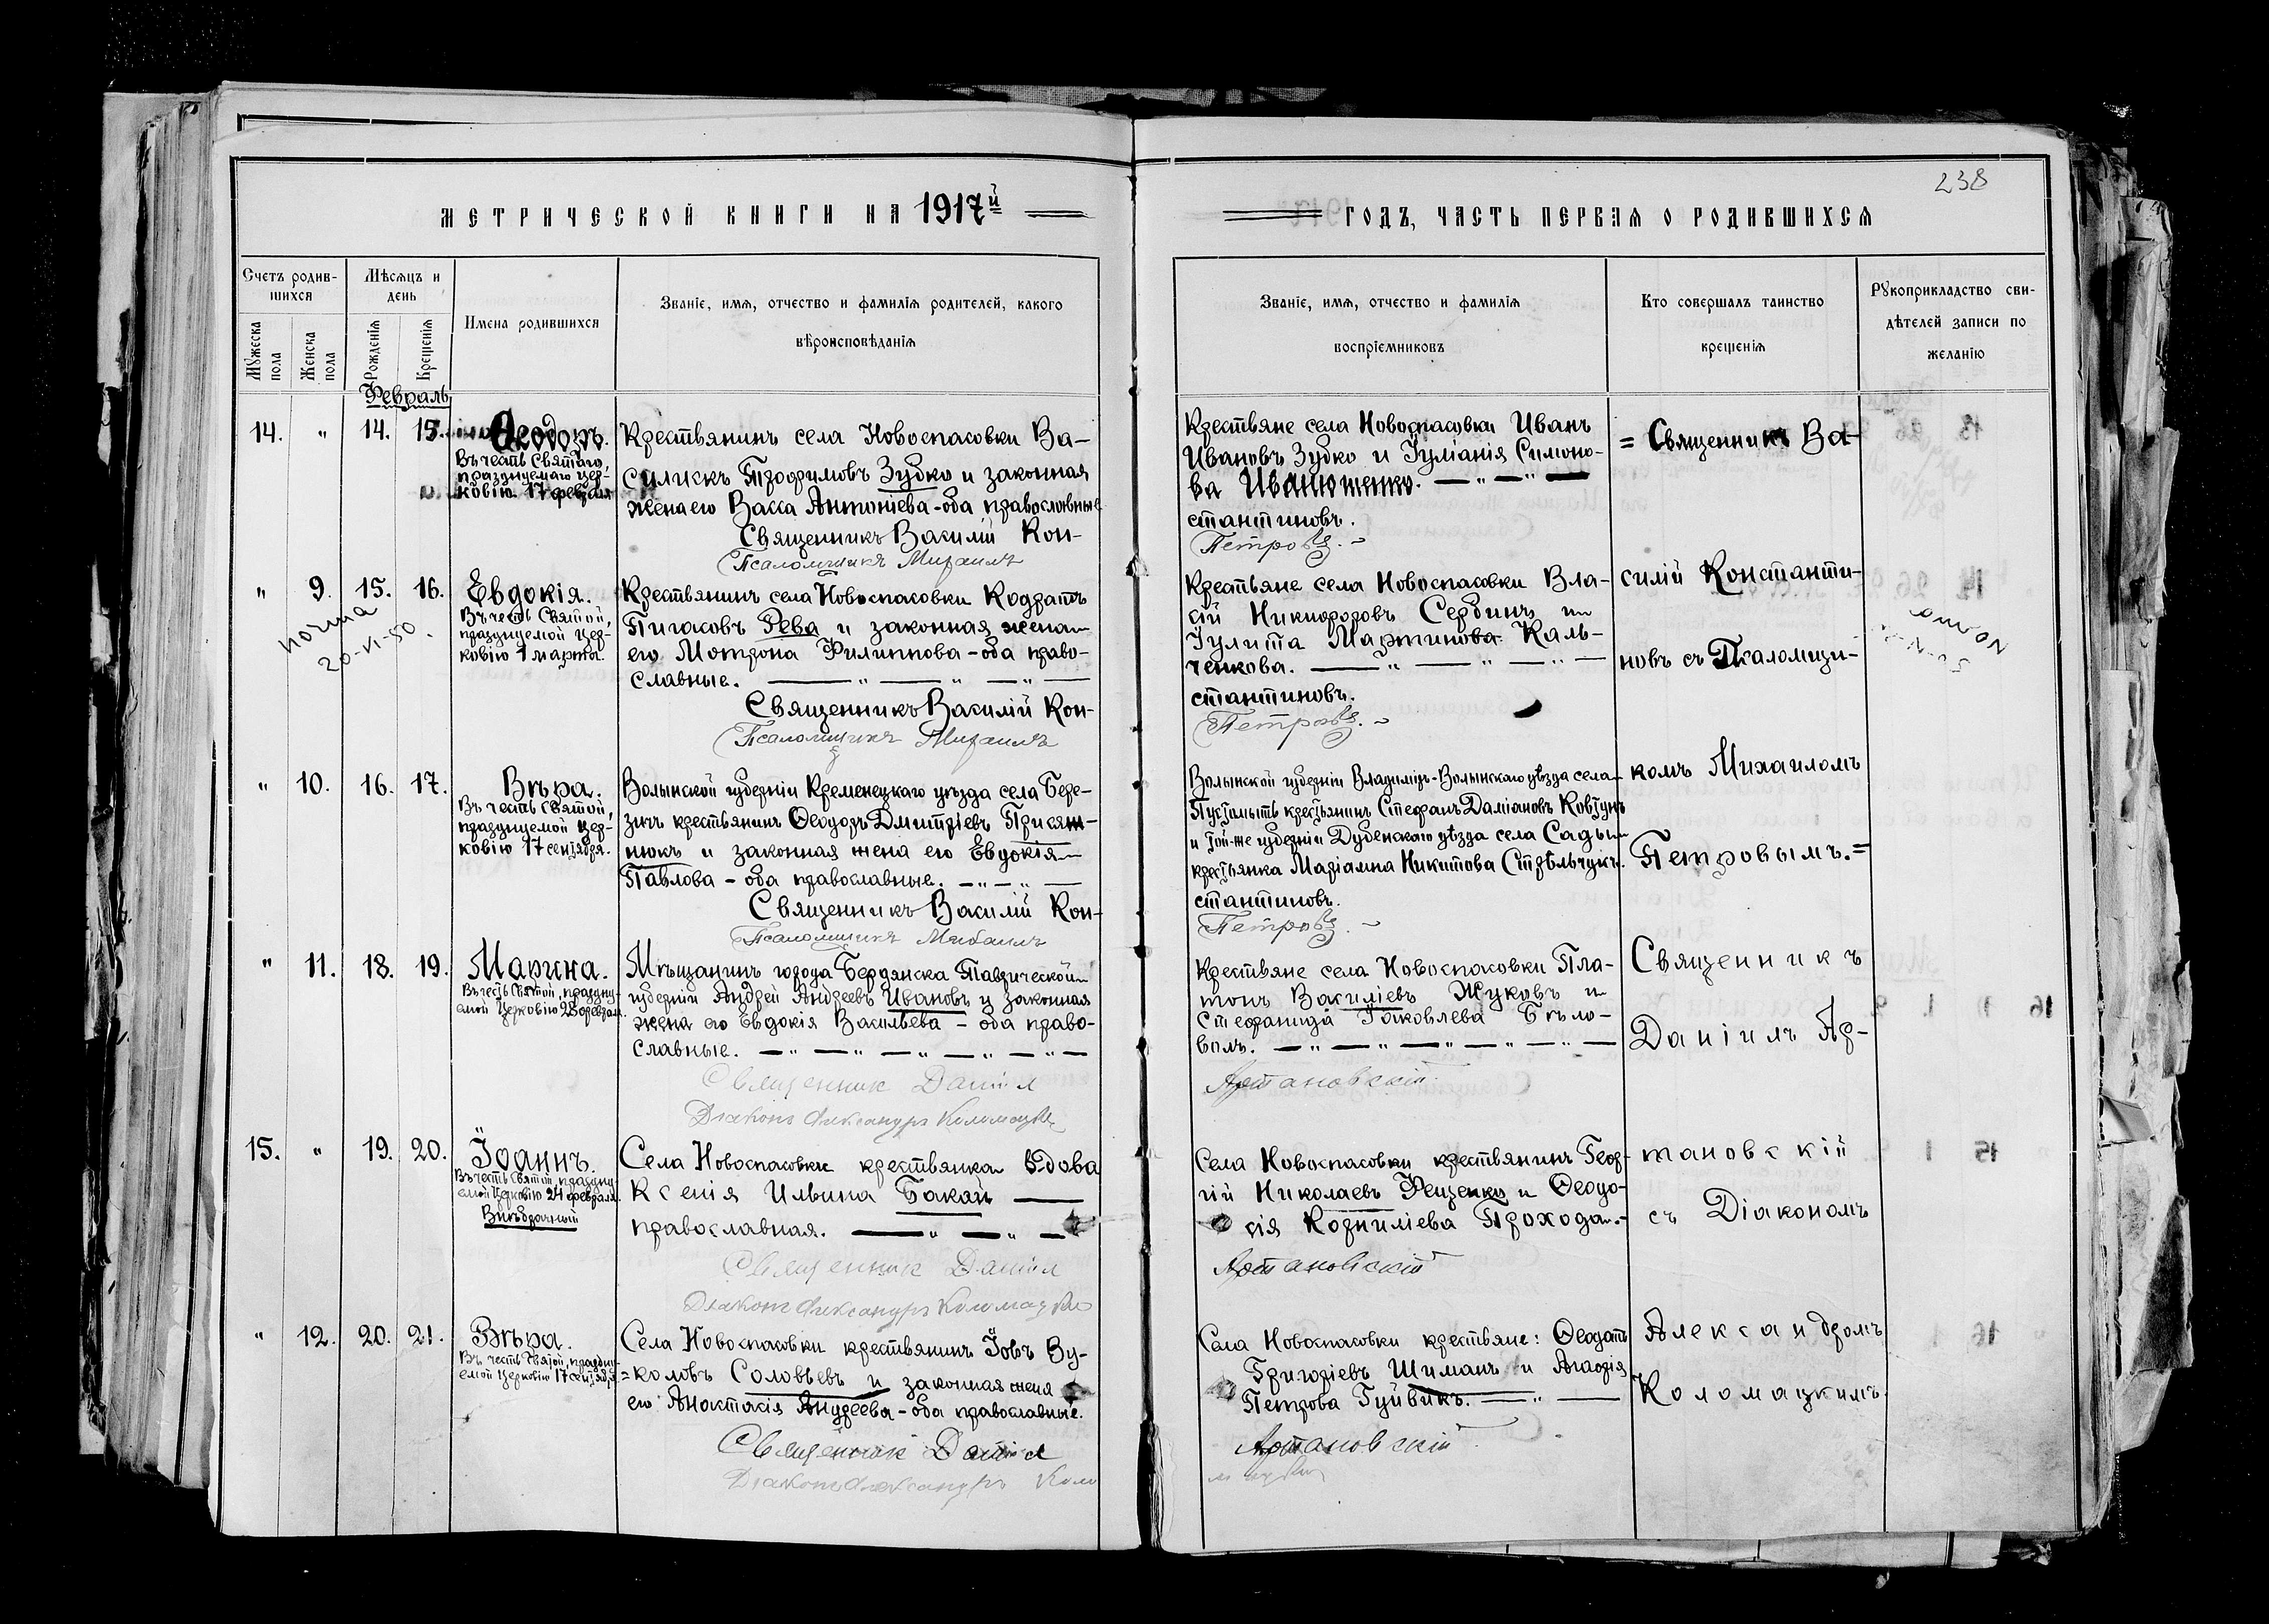 238
МЕТРИЧЕСКОЙ КНИГИ НА 1917й
ГОДЪ, ЧАСТЬ ПЕРВАЯ О РОДИВШИХСЯ
Счетъ родив-
шихся
Мужеска пола
Женска пола
Мѣсяцъ и
день
Рожденія
Крещенія
Имена родившихся
Званіе, имя, отчество и фамилія родителей, какого
вѣроисповѣданія
Званіе, имя, отчество и фамилія
воспріемниковъ
Кто совершалъ таинство
крещенія
Рукоприкладство сви-
дѣтелей записи по
желанію
Февраль
14. " 14. 15.
Ѳеодоръ.
Въ честь Святаго,
празднуемаго Цер-
ковію 17 февраля
Крестьянинъ села Новоспасовки Ва-
силискъ Трофимовъ Зубко и законная
жена его Васса Антоніева - оба православные
Священникъ Василій Кон-
Псаломщикъ Михаилъ
Крестьяне села Новоспасовки Иванъ
Ивановъ Зубко и Іуліанія Симоно-
ва Иванющенко.
стантиновъ.
Петровъ.
= Священникъ Ва-
" 9. 15. 16.
Евдокія.
Въ честь Святой,
празднуемой Цер-
ковію 1 марта.
20-VI-50.
Крестьянинъ села Новоспасовки Кодратъ
Пигасовъ Рева и законная жена
его Мотрона Филиппова - оба право-
славные.
Священникъ Василій Кон-
Псаломщикъ Михаилъ
Крестьяне села Новоспасовки Вла-
сій Никифоровъ Сербинъ и
Іулита Мартинова Каль-
ченкова.
стантиновъ.
Петровъ.
силій Константи-
новъ съ Псаломщи-
" 10. 16. 17.
Вѣра.
Въ честь Святой,
празднуемой Цер-
ковію 17 сентября.
Волынской губерніи Кременецкаго уѣзда села Бере-
зинъ крестьянинъ Ѳеодоръ Дмитріевъ Присяж-
нюкъ и законная жена его Евдокія
Павлова - оба православные.
Священникъ Василій Кон-
Псаломщикъ Михаилъ
Волынской губерніи Владиміръ-Волынскаго уѣзда села
крестьянинъ Стефанъ Даміановъ Ковтунъ
и той-же губерніи Дубенскаго уѣзда села Сады
крестьянка Маріамна Никитова Стрѣльчукъ.
стантиновъ.
Петровъ.
комъ Михаиломъ
Петровымъ. =
" 11. 18. 19.
Марина.
Въ честь Святой, праздну-
емой Церковію 28 февраля.
Мѣщанинъ города Бердянска Таврической
губерніи Андрей Андреевъ Ивановъ и законная
жена его Евдокія Васильева - оба право-
славные.
Священник Даніил
Діаконъ Александръ Коломацкій
Крестьяне села Новоспасовки Пла-
тонъ Василіевъ Жуковъ и
Стефанида Іаковлева Бѣло-
волъ.
Артановскій.
Священникъ
Даніилъ Ар-
15. " 19. 20.
Іоаннъ.
Въ честь Святой, праздну-
емой Церковію 24 февраля.
Внѣбрачный
Села Новоспасовки крестьянка вдова
Ксенія Ильина Бакай
православная.
Священник Даніил
Діаконъ Александръ Коломацкій
Села Новоспасовки крестьянинъ Геор-
гій Николаевъ Фещенко и Ѳеодо-
сія Корниліева Прохода.
Артановскій
тановскій
съ Діакономъ
" 12. 20. 21.
Вѣра.
Въ честь Святой, праздну-
емой Церковію 17 сентября.
Села Новоспасовки крестьянинъ Іовъ Ву-
=коловъ Соловьевъ и законная жена
его Анастасія Андреева - оба православные.
Священник Даніил
Діаконъ Александръ Коло
Села Новоспасовки крестьяне: Ѳеодотъ
Григоріевъ Шиманъ и Агафія
Петрова Гуйвикъ.
Артановскій
мацкій
Александромъ
Коломацкимъ.